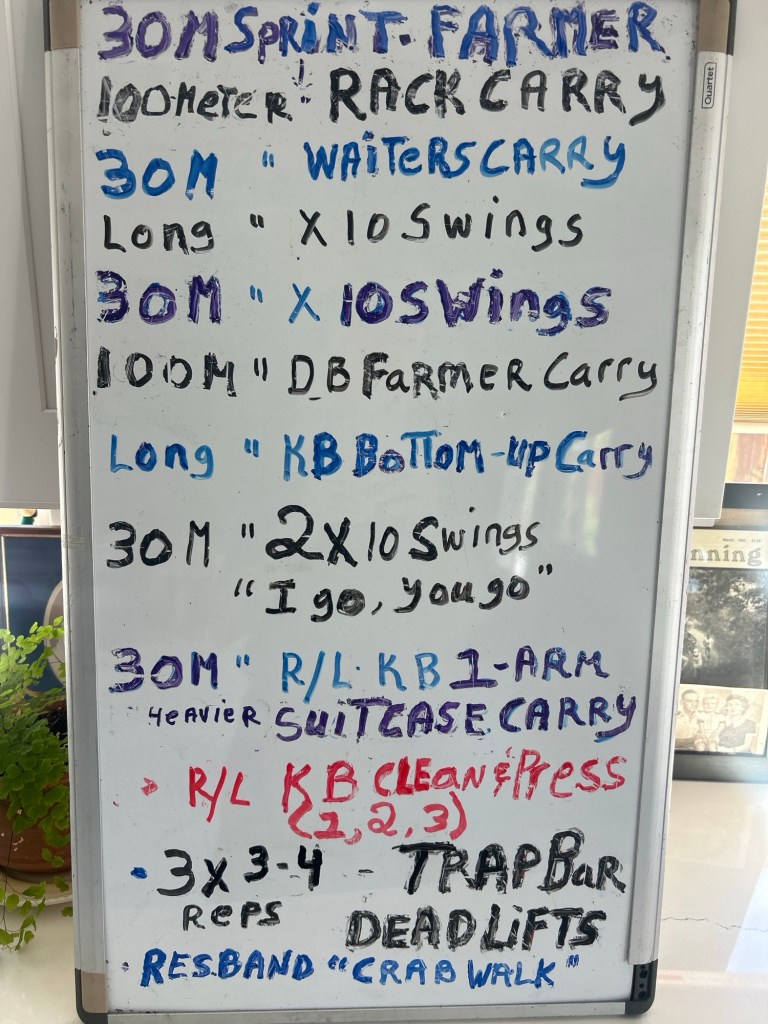 30M SPRINT. FARMER
100METER " RACK CARRY
30M " WAITERS CARRY
Long " X 10 Swings
30M " X 10 SWings
100M " DB FaRMER Carry
Long " KB BoTToM-up Carry
30M " 2X10 Swings
"I go, you go"
30M " R/L. KB 1-ARM
HEAVIER SUITCASE CARRY
R/L KB CLEan & Press
(1, 2, 3)
• 3x 3-4 - TRAP BaR
Reps DEADLiFTS
• RES.BAND "CRAB WALK"
Quartet
nning